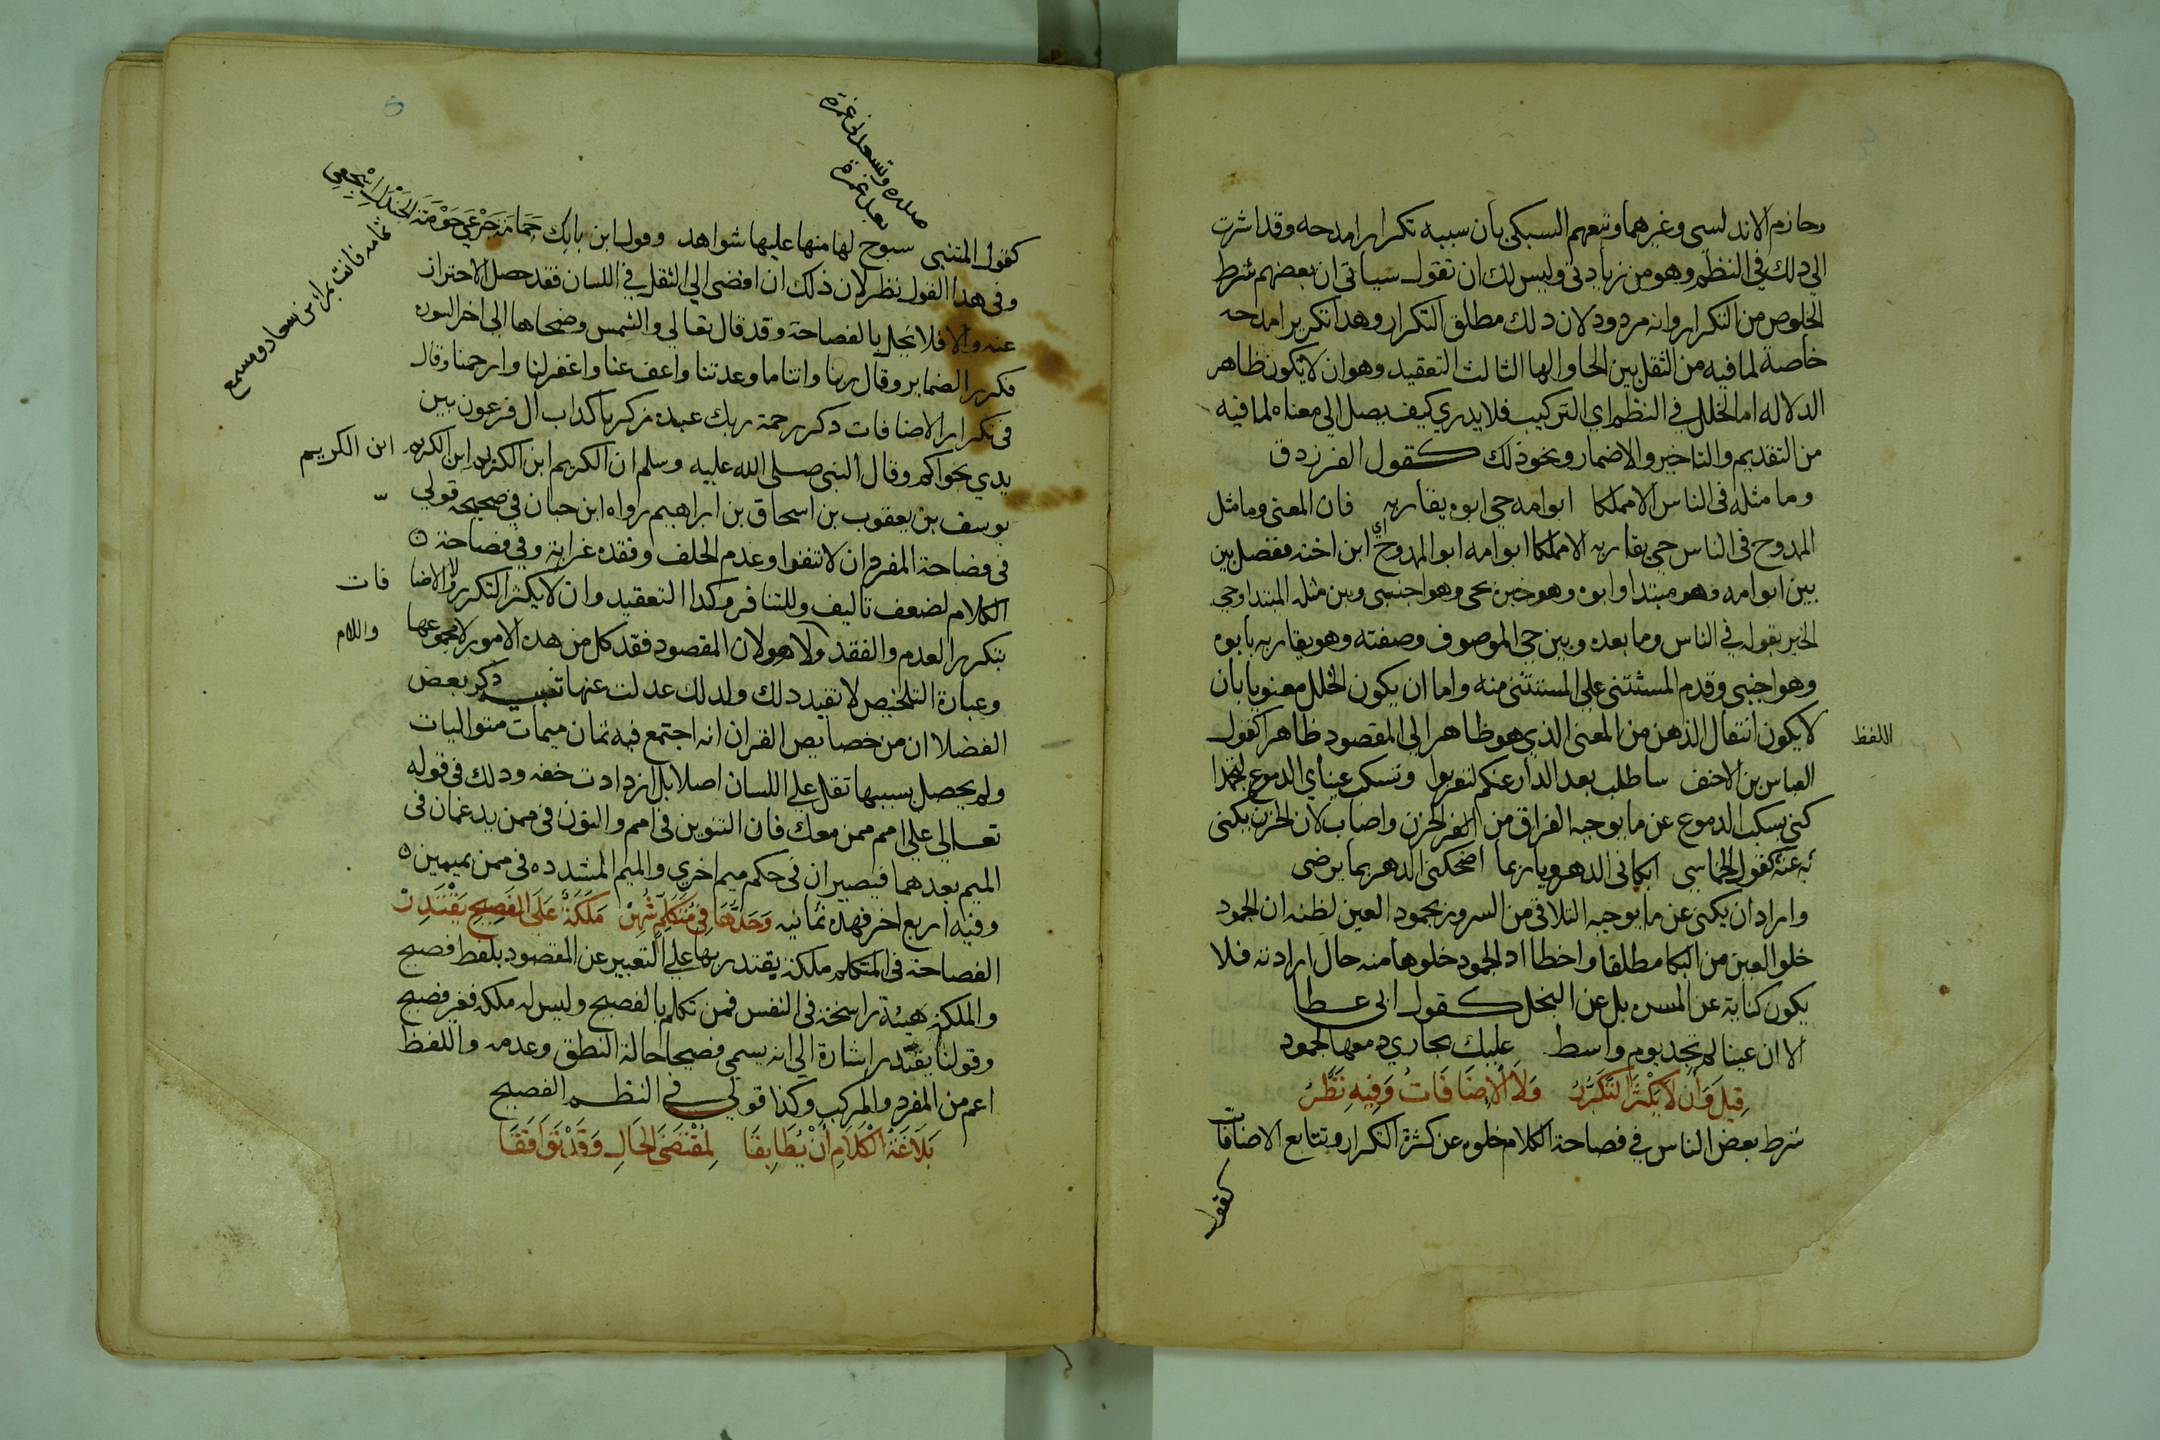 وحازم الاندلسي وغيرهما وتبعهم السبكي بأن سببه تكرار امدحه وقد اشرت
الي ذلك في النظم وهو من زيادتي وليس لك ان تقول سياتي ان بعضهم شرط
الخلوص من التكرار وانه مردود لان ذلك مطلق التكرار وهذا تكرير امدحه
خاصة لما فيه من الثقل بين الحا والها الثالث التعقيد وهو ان لا يكون ظاهر
الدلاله اما لخلل في النظم اي التركيب فلا يدري كيف يصل الي معناه لما فيه
من التقديم والتاخير والاضمار ونحو ذلك كقول الفرزدق
وما مثله في الناس الا مملكا ابو امه حي ابوه يقاربه فان المعنى وما مثل
الممدوح في الناس حي يقاربه الا مملكا ابو امه ابو الممدوح اي ابن اخته ففصل بين
بين ابو امه فهو مبتدا وابوه وهو خبره بحي وهو اجنبي وبين مثله المبتدا وحي
الخبر بقوله في الناس وما بعده وبين حي الموصوف وصفته وهو يقاربه بابوه
وهو اجنبي وقدم المستثنى علي المستثنى منه واما ان يكون الخلل معنويا بان
لا يكون انتقال الذهن من المعنى الذي هو ظاهر الي المقصود ظاهرا كقول
اللفظ
العباس بن الاحنف ساطلب بعد الدار عنكم لتقربوا وتسكب عيناي الدموع لتجمدا
كنى بسكب الدموع عن ما يوجبه الفراق من الحزن واصاب لان الحزن يكنى
به عنه كقول الحماسي ابكاني الدهر ويا ربما اضحكني الدهر بما يرضي
واراد ان يكنى عن ما يوجبه التلاقي من السرور بجمود العين لظنه ان الجمود
خلو العين من البكا مطلقا واخطا اذ الجمود خلوها منه حال ارادته فلا
يكون كناية عن المسره بل عن البخل كقول ابي عطا
الا ان عينا لم تجد يوم واسط عليك بجاري دمعها لجمود
قِيلَ وَأن لا يكثر التَكَرُّرُ وَلَا الْإضَافَاتُ وَفِيهِ نَظَرُ
شرط بعض الناس في فصاحة الكلام خلوه عن كثرة التكرار وتتابع الاضافات
كقول
صدره وتسعدني في غمرة
بعد غمرة
كقول المتنبي سبوح لها منها عليها شواهد وقول ابن بابك حَمَامَةَ جَرْعَي حَوْمَةَ الجَنْدَلِ اسْجَعِي
تمامه فانت بمراى من سعاد ومسمع
وفي هذا القول نظر لان ذلك ان افضى الي الثقل في اللسان فقد حصل الاحتراز
عنه والا فلا يخل بالفصاحة وقد قال تعالي والشمس وضحاها الي اخر السوره
فكرر الضماير وقال ربنا واتنا ما وعدتنا واعف عنا واغفر لنا وارحمنا وقال
في تكرار الاضافات ذكر رحمة ربك عبده زكريا كداب ال فرعون بين
يدي نجواكم وقال النبي صلى الله عليه وسلم ان الكريم ابن الكريم ابن الكريم ابن الكريم
يوسف بن يعقوب بن اسحاق بن ابراهيم رواه ابن حبان في صحيحه قولي
في فصاحة المفرد ان لا تنفوا وعدم الخلف وفقده غرابة وفي فصاحة
الكلام لضعف تاليف وللتنافر وكذا التعقيد وان لا يكثر التكرر ولا الاضافات
بتكرر العدم والفقد ولا هو لان المقصود فقد كل من هذه الامور لا مجموعها واللام
وعبارة التلخيص لا تفيد ذلك ولذلك عدلت عنها تنبيه ذكر بعض
الفضلا ان من خصايص القران انه اجتمع فيه ثمان ميمات متواليات
ولم يحصل بسببها ثقل علي اللسان اصلا بل ازدادت خفه وذلك في قوله
تعالي علي امم ممن معك فان التنوين في امم والنون في ممن يدغمان في
الميم بعدهما فيصيران في حكم ميم اخري والميم المشدده في ممن بميمين
وفيه اربع اخر فهذه ثمانيه وَحَدُّهَا فِي مُتَكَلِّمٍ شُهِرْ مَلَكَةٌ عَلَى الفَصِيحِ يَقْتَدِرْ
الفصاحة في المتكلم ملكة يقتدر بها علي التعبير عن المقصود بلفظ فصيح
والملكة هيئة راسخة في النفس فمن تكلم بالفصيح وليس له ملكة فغير فصيح
وقولنا يقتدر اشارة الي انه يسمي فصيحا حالة النطق وعدمه واللفظ
اعم من المفرد والمركب وكذا قولي في النظم الفصيح
بَلَاغَةُ الْكَلَامِ أنْ يُطَابِقَا لِمُقْتَضَى الحَالِ وَقَدْ تَوَافَقَا